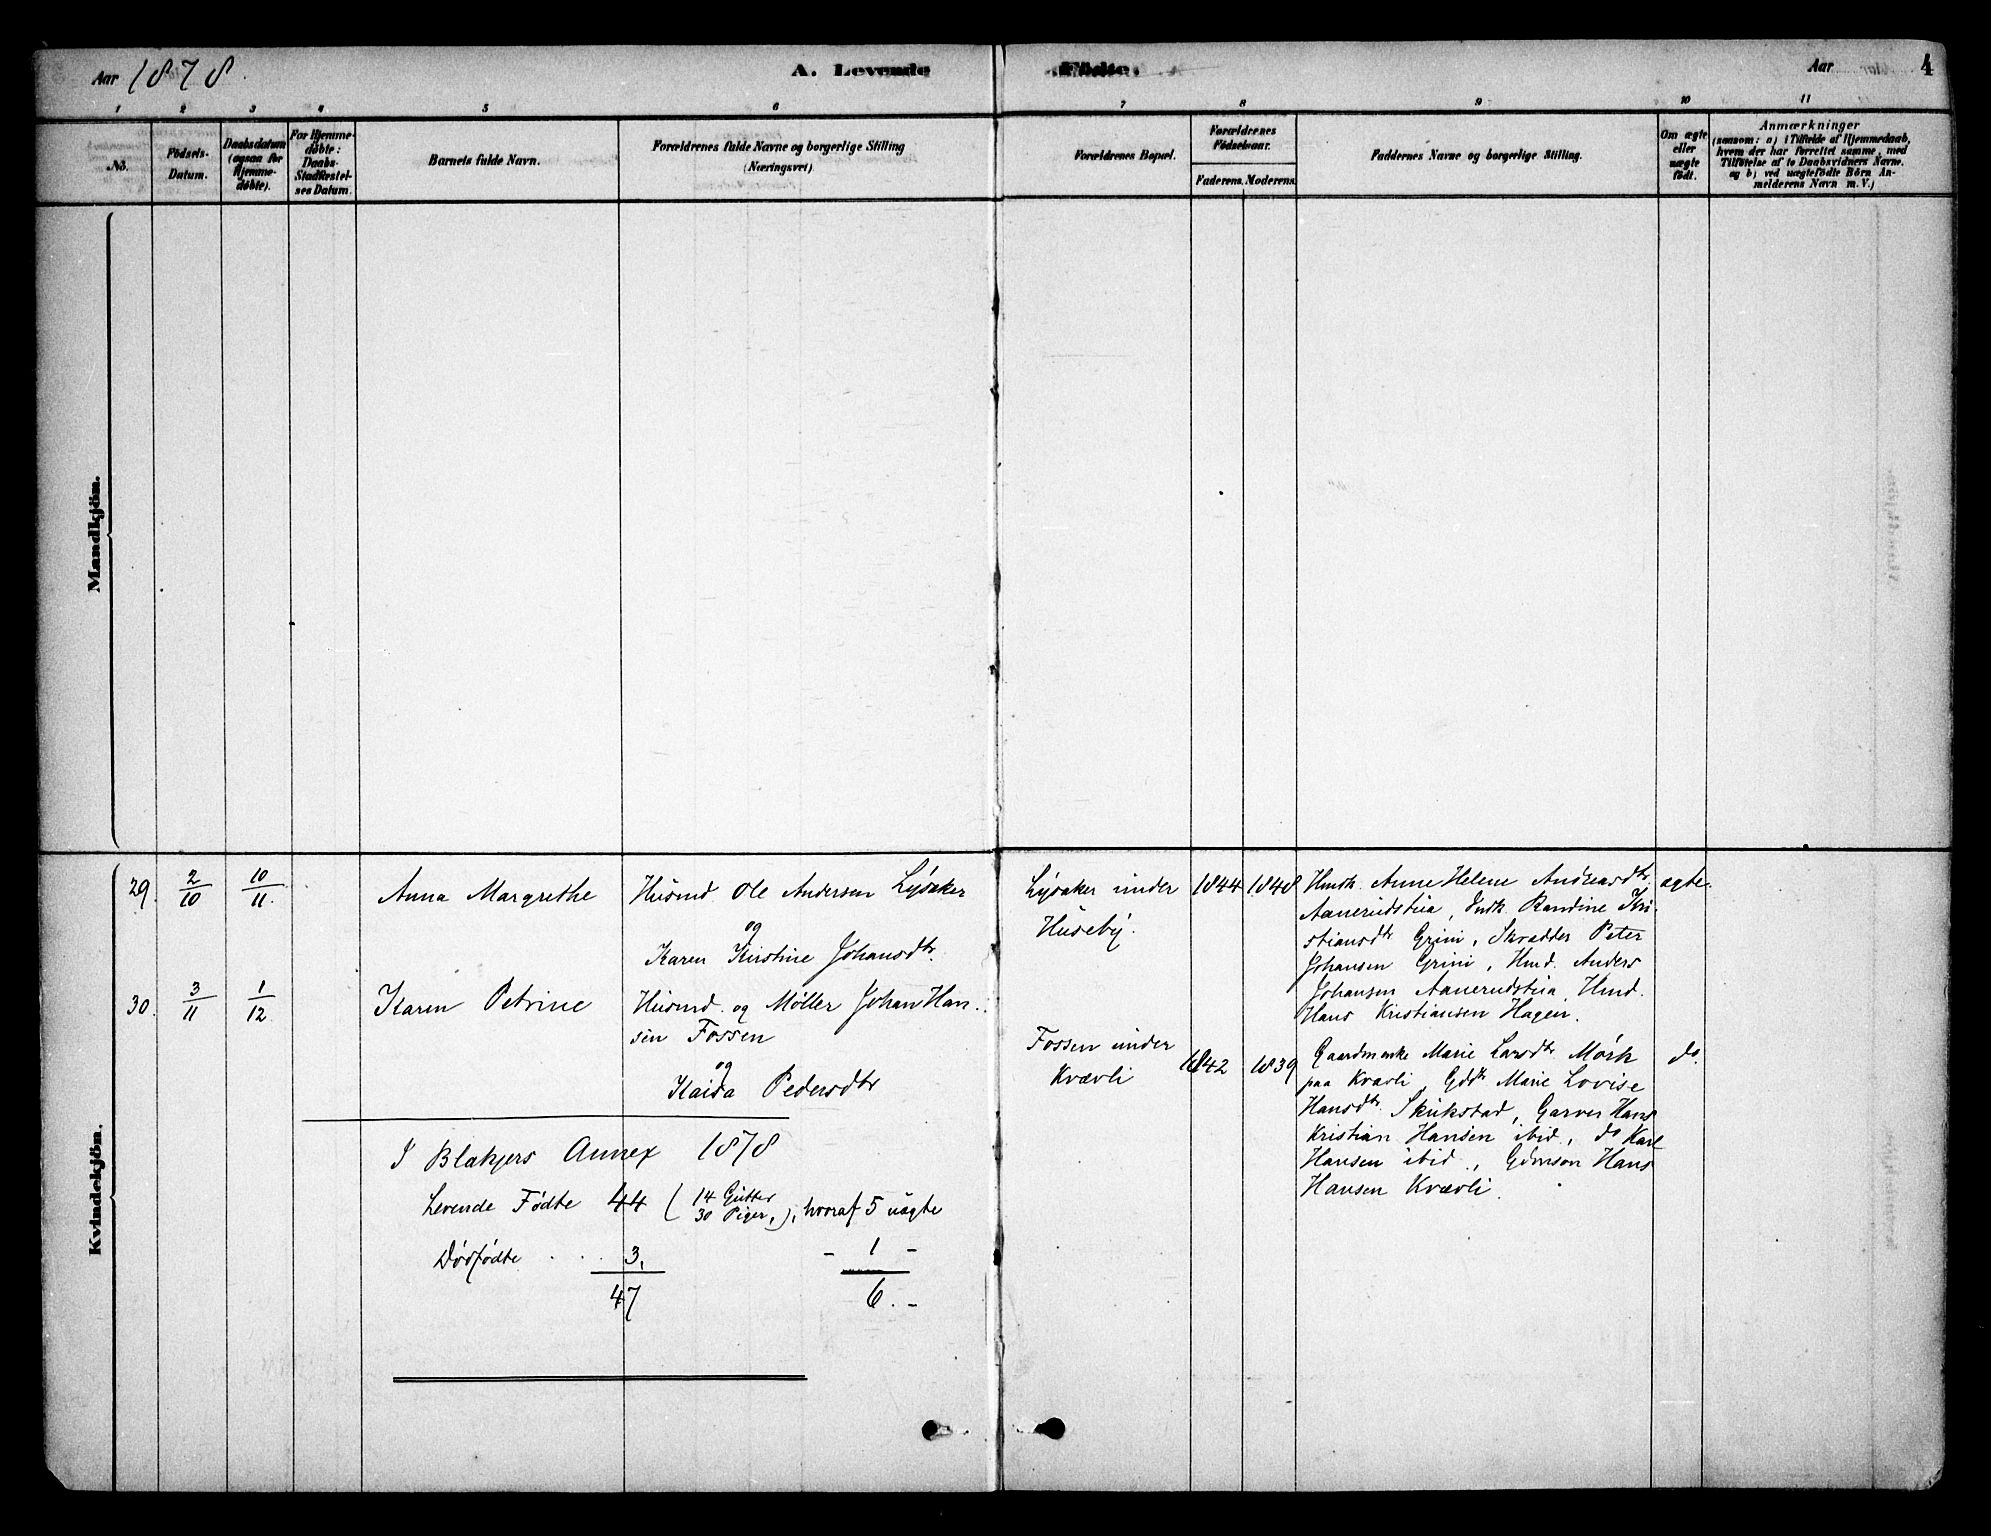 Aar 1878
A. Levende
Födte.
Aar
4
1 2 3 4 5 6 7 8 9 10 11
No.
Födsels-
Datum.
Daabsdatum
(ogsaa for
Hjemme-
døbte).
For Hjemme-
døbte:
Daabs-
Stadfæstel-
ses Datum.
Barnets fulde Navn.
Forældrenes fulde Navne og borgerlige Stilling
(Næringsvei)
Forældrenes Bopæl.
Forældrenes
Födselsaar.
Faderens. Moderens.
Faddernes Navne og borgerlige Stilling.
Om ægte
eller
uægte
födt.
Anmærkninger
(saasom: a) i Tilfælde af Hjemmedaab,
hvem der har forrettet samme, med
Tilföielse af to Daabsvidners Navne.
og b) ved uægtefödte Börn An-
melderens Navn m. V.)
Mandkjön.
Kvindekjön.
29. 2/10 10/11.
Anna Margrethe
Husmd. Ole Andersen Lysaker
og
Karen Kirstine Johansdtr.
Lysaker under
Huseby.
1844 1848
Hmdk. Anne Helene Andreasdtr.
Aanerudstua, Indk. Randine Kri-
stiansdtr Grini, Skrædder Peter
Johansen Grini, Hmd. Anders
Johansen Aanerudstua, Hmd.
Hans Kristiansen Hagen.
ægte.
30. 3/11 1/12
Karen Petrine
Husmd. og Møller Johan Han-
sen Fossen
og
Kaisa Pedersdtr
Fossen under
Kvævli
1842 1839
Gaardmanske Marie Larsdtr Mörk
paa Kvævli, Gddtr Marie Lovise
Hansdtr Skukstad, Garver Hans
Kristian Hansen ibid, do Karl
Hansen ibid, Gdmson Hans
Hansen Kvævli.
do.
I Blakjers Annex 1878
Levende Fødte 44 ( 14 Gutter
30 Piger, ), hvoraf 5 uægte
Dødfødte . . . 3, - 1 -
47 6. -